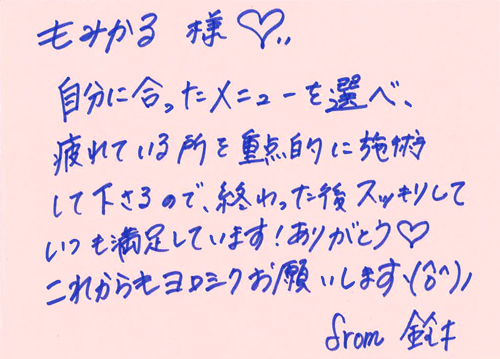 もみかる 様♡,,
自分に合ったメニューを選べ、
疲れている所を重点的に施術
して下さるので、終わった後スッキりして
いつも満足しています!ありがとう♡
これからもヨロシクお願いしますヽ(^o^)ノ
from 鈴木